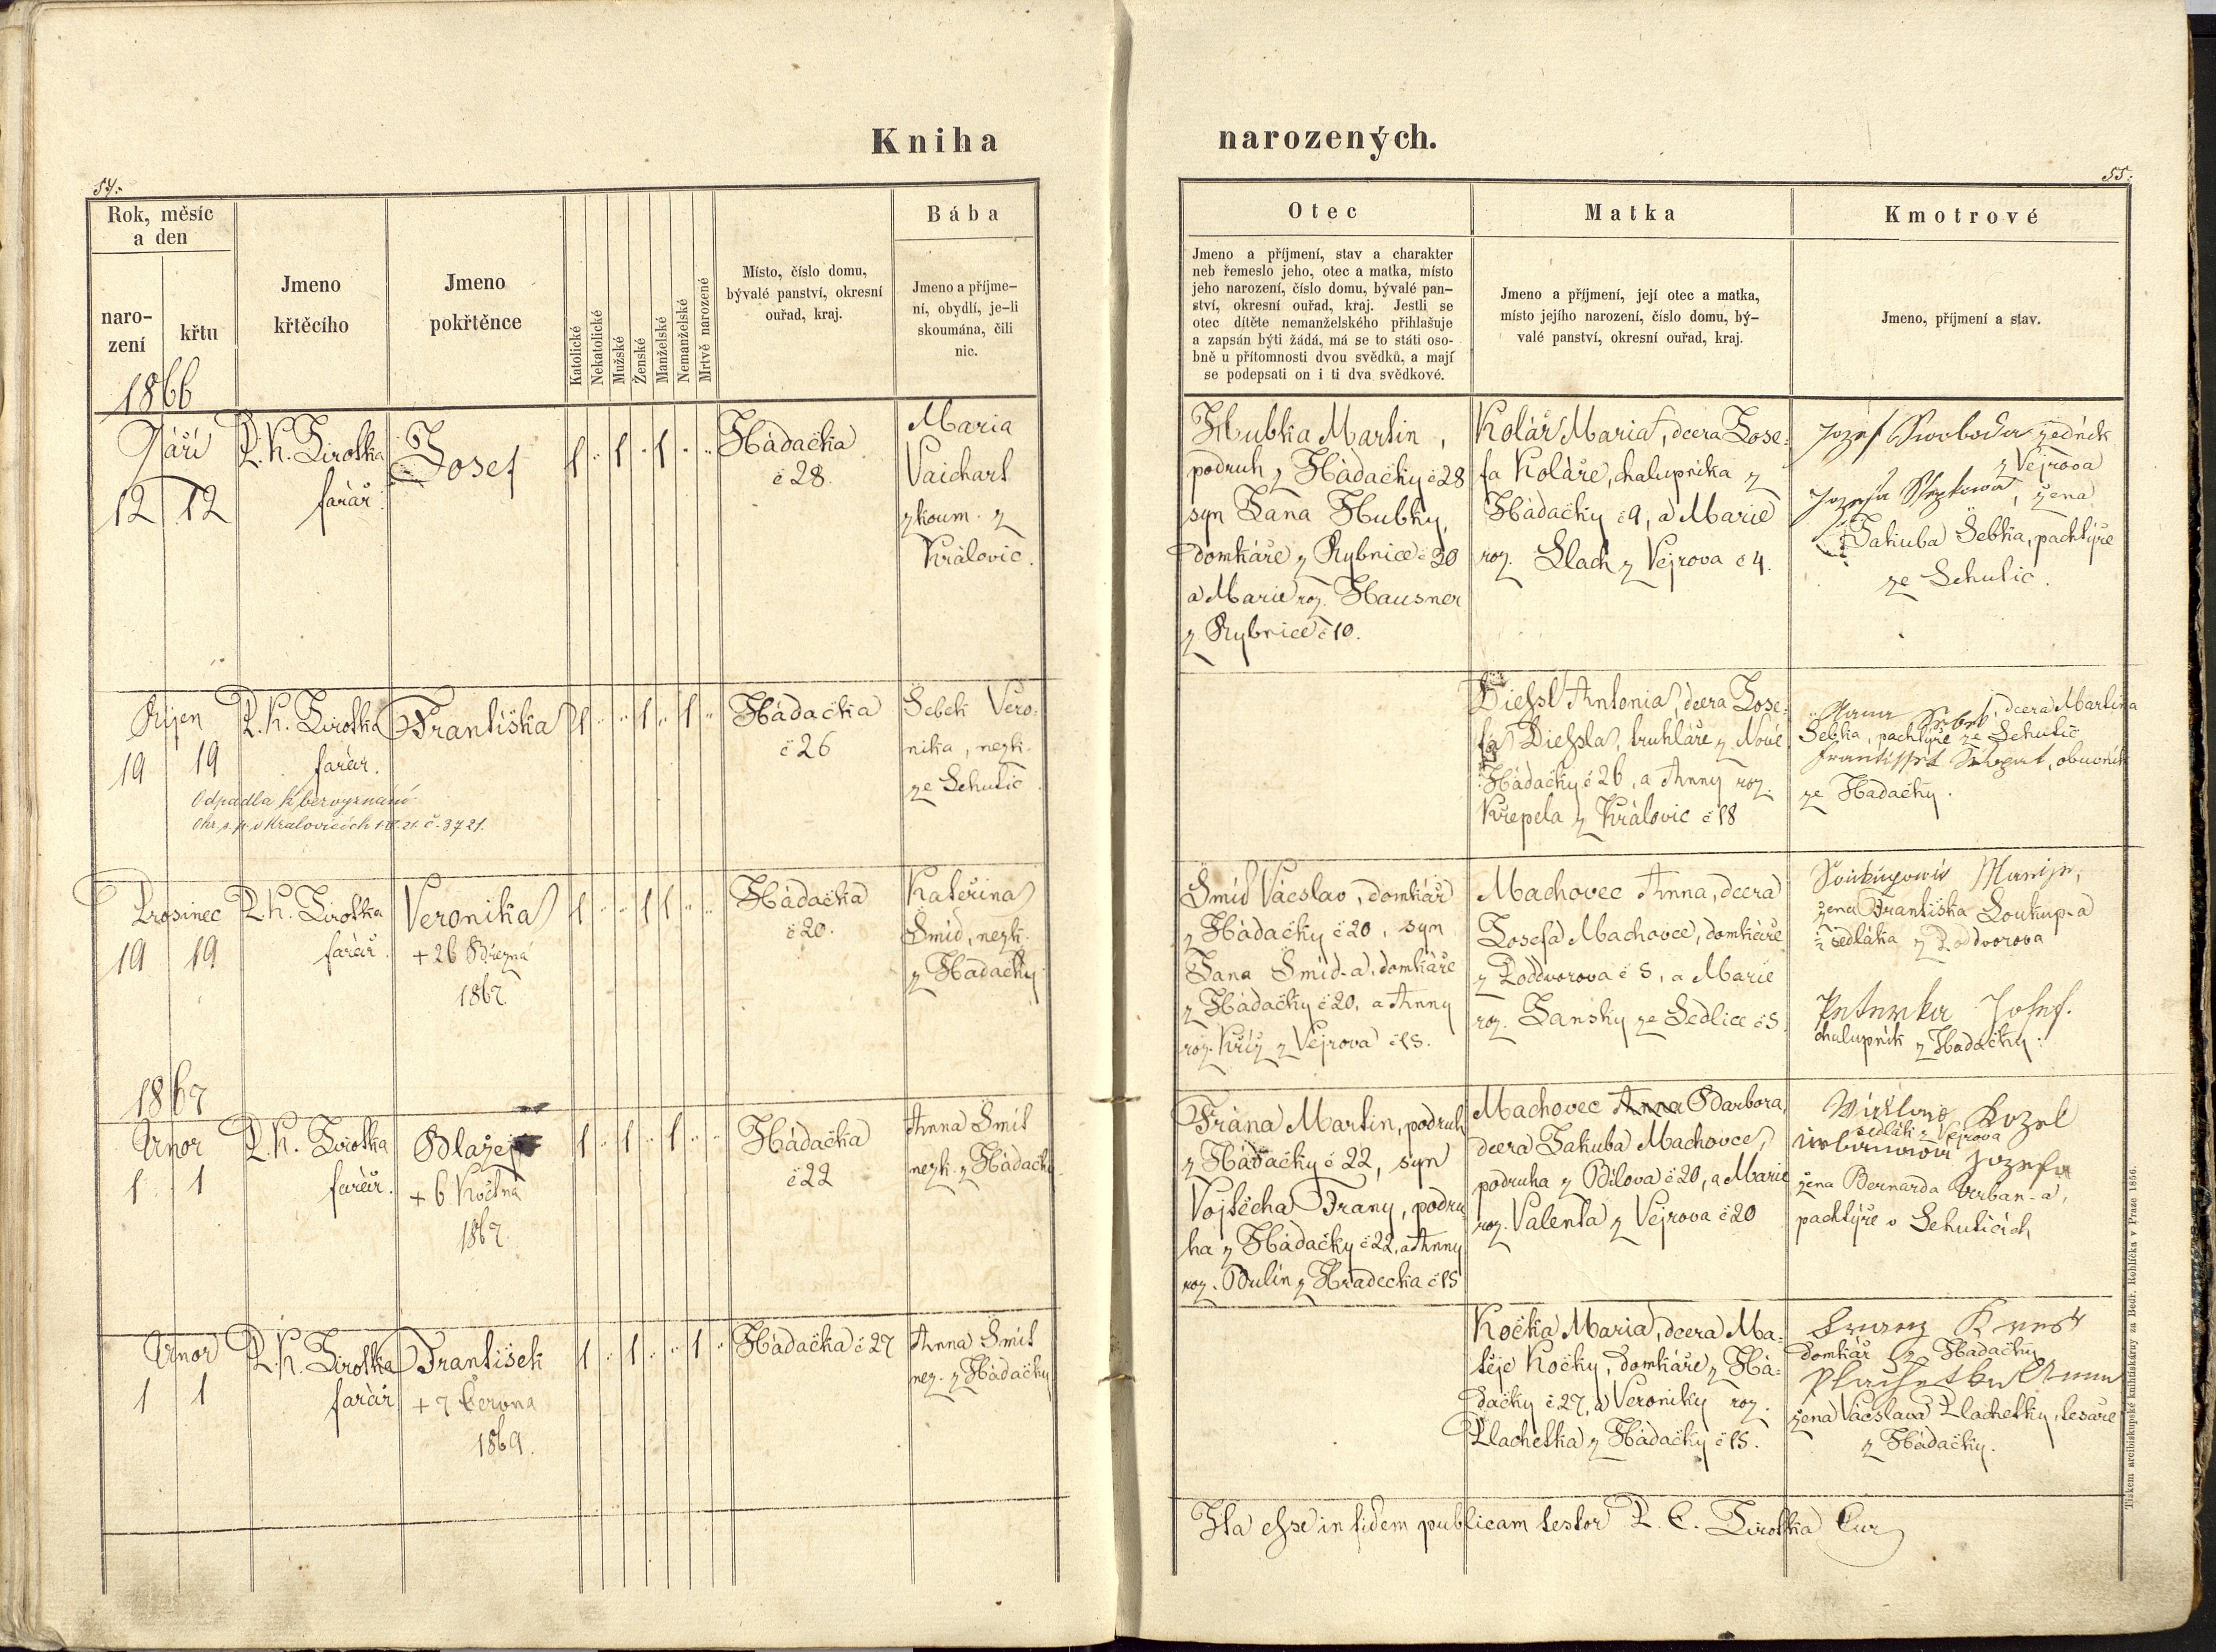 Kniha narozených.
54.
55.
Rok, měsíc
a den
naro-
zení
křtu
Jmeno
křtěcího
Jmeno
pokřtěnce
Katolické
Nekatolické
Mužské
Ženské
Manželské
Nemanželské
Mrtvě narozené
Místo, číslo domu,
bývalé panství, okresní
ouřad, kraj.
Bába
Jmeno a příjme-
ní, obydlí, je-li
skoumána, čili
nic.
Otec
Jmeno a příjmení, stav a charakter
neb řemeslo jeho, otec a matka, místo
jeho narození, číslo domu, bývalé pan-
ství, okresní ouřad, kraj. Jestli se
otec dítěte nemanželského přihlašuje
a zapsán býti žádá, má se to státi oso-
bně u přítomnosti dvou svědků, a mají
se podepsati on i ti dva svědkové.
Matka
Jmeno a příjmení, její otec a matka,
místo jejího narození, číslo domu, bý-
valé panství, okresní ouřad, kraj.
Kmotrové
Jmeno, příjmení a stav.
1866
Září
12 12
P. K. Sirotka
farář.
Josef
1 " 1 " 1 " "
Hádačka
č 28.
Maria
Vaichart
zkoum. z
Královic.
Hubka Martin,
podruh z Hádačky č 28
syn Jana Hubky,
domkáře z Rybnice č 30
a Marie roz. Hausner
z Rybnice č 10.
Kolář Maria, dcera Jose-
fa Koláře, chalupníka z
Hádačky č 9, a Marie
roz. Vlach z Vejrova č 4.
Jozef Swoboda zedník
z Vejrova
žena
Jakuba Šebka, pachtýře
ze Sehutic.
Říjen
19 19
P. K. Sirotka
farář.
Františka
1 " " 1 " 1 "
Hádačka
č 26
Šebek Vero-
nika, nezk.
ze Sehutic
Odpadla k bezvyznání
v Kralovicích č. 3721.
Diessl Antonia, dcera Jose-
fa Diessla, truhláře z Nové
Hádačky č 26, a Anny roz.
Křepela z Královic č 18
Anna Šebek, dcera Martina
Šebka, pachtýře ze Sehutic
obuvník
ze Hádačky.
Prosinec
19 19
P. K. Sirotka
farář.
Veronika
+ 26 Března
1867
1 " " 1 1 " "
Hádačka
č 20.
Kateřina
Šmíd, nezk.
z Hádačky
Šmíd Václav, domkář
z Hádačky č 20, syn
Jana Šmíd-a, domkáře
z Hádačky č 20, a Anny
roz. Kříž z Vejrova č 15.
Machovec Anna, dcera
Josefa Machovce, domkáře
z Poddvorova č 5, a Marie
roz. Janský ze Sedlice č 5
Soukupowá Marije,
žena Františka Soukup-a
½ sedláka z Poddvorova
Peterka Josef.
chalupník z Hádačky.
1867
Únor
1 1
P. K. Sirotka
farář.
Blažej
+ 6 Května
1867.
1 " 1 " 1 " "
Hádačka
č 22
Anna Šmit
nezk. z Hádačky
Frána Martin, podruh
z Hádačky č 22, syn
Vojtěcha Frany, podru
ha z Hádačky č 22, a Anny
roz. Bulín z Hradecka č 15
Machovec Anna Barbora,
dcera Jakuba Machovce,
podruha z Bílova č 20, a Marie
roz. Valenta z Vejrova č 20
Kozel
sedlák z Vejrova
Urbanowá Jozefa
žena Bernarda Urban-a,
pachtýře v Sehuticích
Únor
1 1
P. K. Sirotka
farář
František
+ 7 Června
1869.
1 " 1 " " 1 "
Hádačka č 27
Anna Šmit
nez. z Hádačky
Kočka Maria, dcera Ma-
těje Kočky, domkáře z Há-
dačky č 27, a Veroniky roz.
Plachetka z Hádačky č 15.
Franz
domkář z Hádačky
Plachetka Anna
žena Václava Plachetky, tesaře
z Hádačky.
Ita esse in fidem publicam testor P. C. Sirotka Cur
Tiskem arcibiskupské knihtiskárny za Bedř. Rohlíčka v Praze 1856.